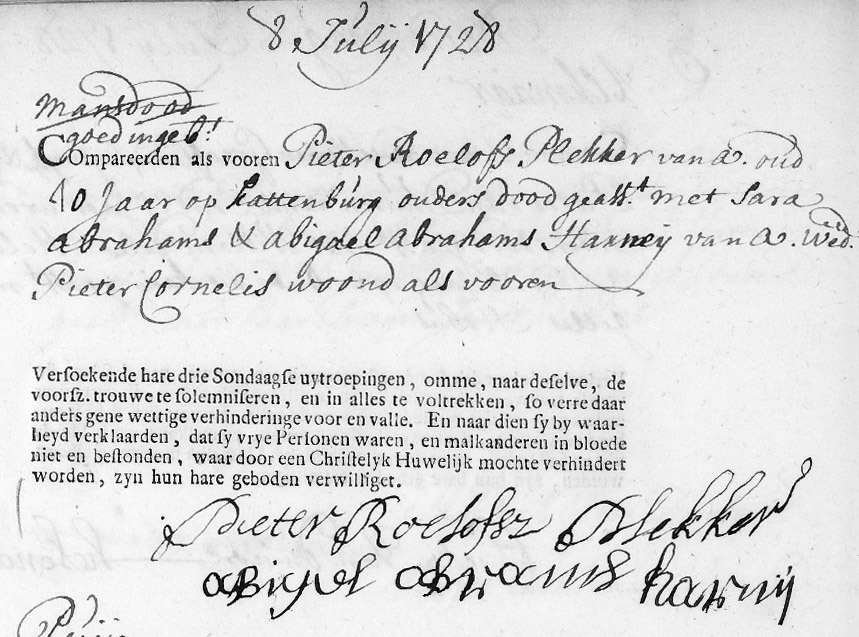 8 Julij 1728
mansdood
goed ingeb:t
Compareerden als vooren Pieter Roelofs Plekker van A. oud
40 Jaar op Kattenburg ouders dood geass:t met Sara
Abrahams & Abigael Abrahams Harney van A. Wed.
Pieter Cornelis woond als vooren
Versoekende hare drie Sondaagse uytroepingen, omme, naar deselve, de
voorsz. trouwe te solemniseren, en in alles te voltrekken, so verre daar
anders gene wettige verhinderinge voor en valle. En naar dien sy by waar-
heyd verklaarden, dat sy vrye Personen waren, en malkanderen in bloede
niet en bestonden, waar door een Christelyk Huwelijk mochte verhindert
worden, zyn hun hare geboden verwilliget.
Pieter Roelofsz Plekker
abigel abrams harnij